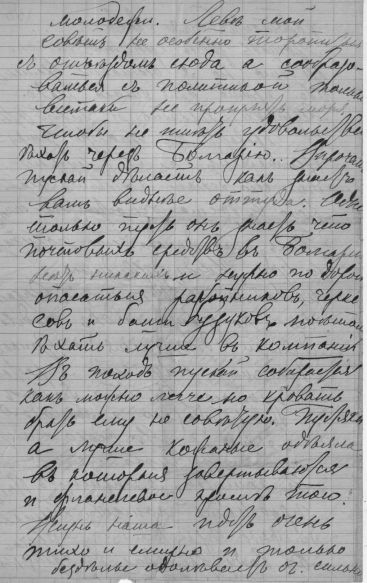 молодежи. Левъ мой
совѣтъ не особенно торопиться
съ отъѣздомъ сюда а сообразо-
ваться съ политикой только
не
чтобы не имѣть удовольствія
ѣхать черезъ Болгарію. Впрочемъ
пускай дѣлаетъ какъ знаетъ
вамъ виднѣе оттуда.
только пусть онъ знаетъ что
почтовыхъ средствъ въ Болгаріи
нѣтъ никакихъ и нужно по дорогѣ
опасаться разбойниковъ, черке-
совъ и баши бузуковъ поэтому
ѣхать лучше въ компаніи
Въ походъ пускай собирается
какъ можно легче но кровать
брать ему не совѣтую.
а лучше кожаные одѣяла
въ которыя завертываются
и фланелевое
Жизнь наша идетъ очень
тихо и смирно и только
бездѣлье одолѣваетъ